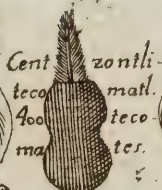 Cent zontli-
teco matl.
400 teco-
ma tes.